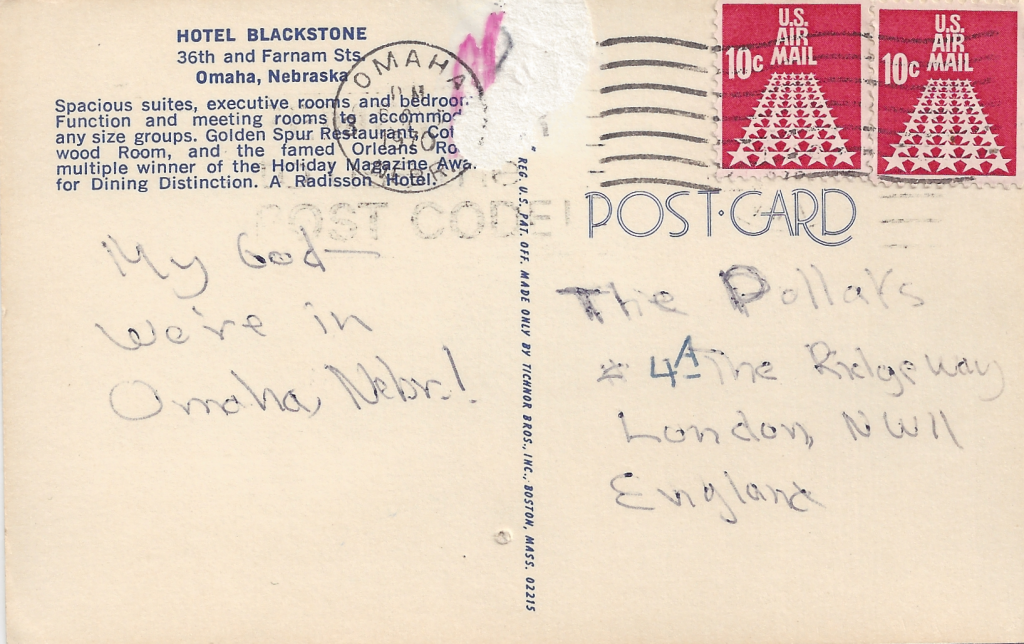 HOTEL BLACKSTONE
36th and Farnam Sts.
Omaha, Nebraska
Spacious suites, executive rooms and bedroom
Function and meeting rooms to accommo
any size groups. Golden Spur Restaurant, Cot
wood Room, and the famed Orleans Ro
multiple winner of the Holiday Magazine Awa
for Dining Distinction. A Radisson Hotel.
OMAHA
POST CODE!
U.S.
AIR
MAIL
10c
U.S.
AIR
MAIL
10c
POST·CARD
My God—
We're in
Omaha, Nebr.!
REG. U.S. PAT. OFF. MADE ONLY BY TICHNOR BROS., INC., BOSTON, MASS. 02215
The Pollars
4A The Ridgeway
London, NW11
England